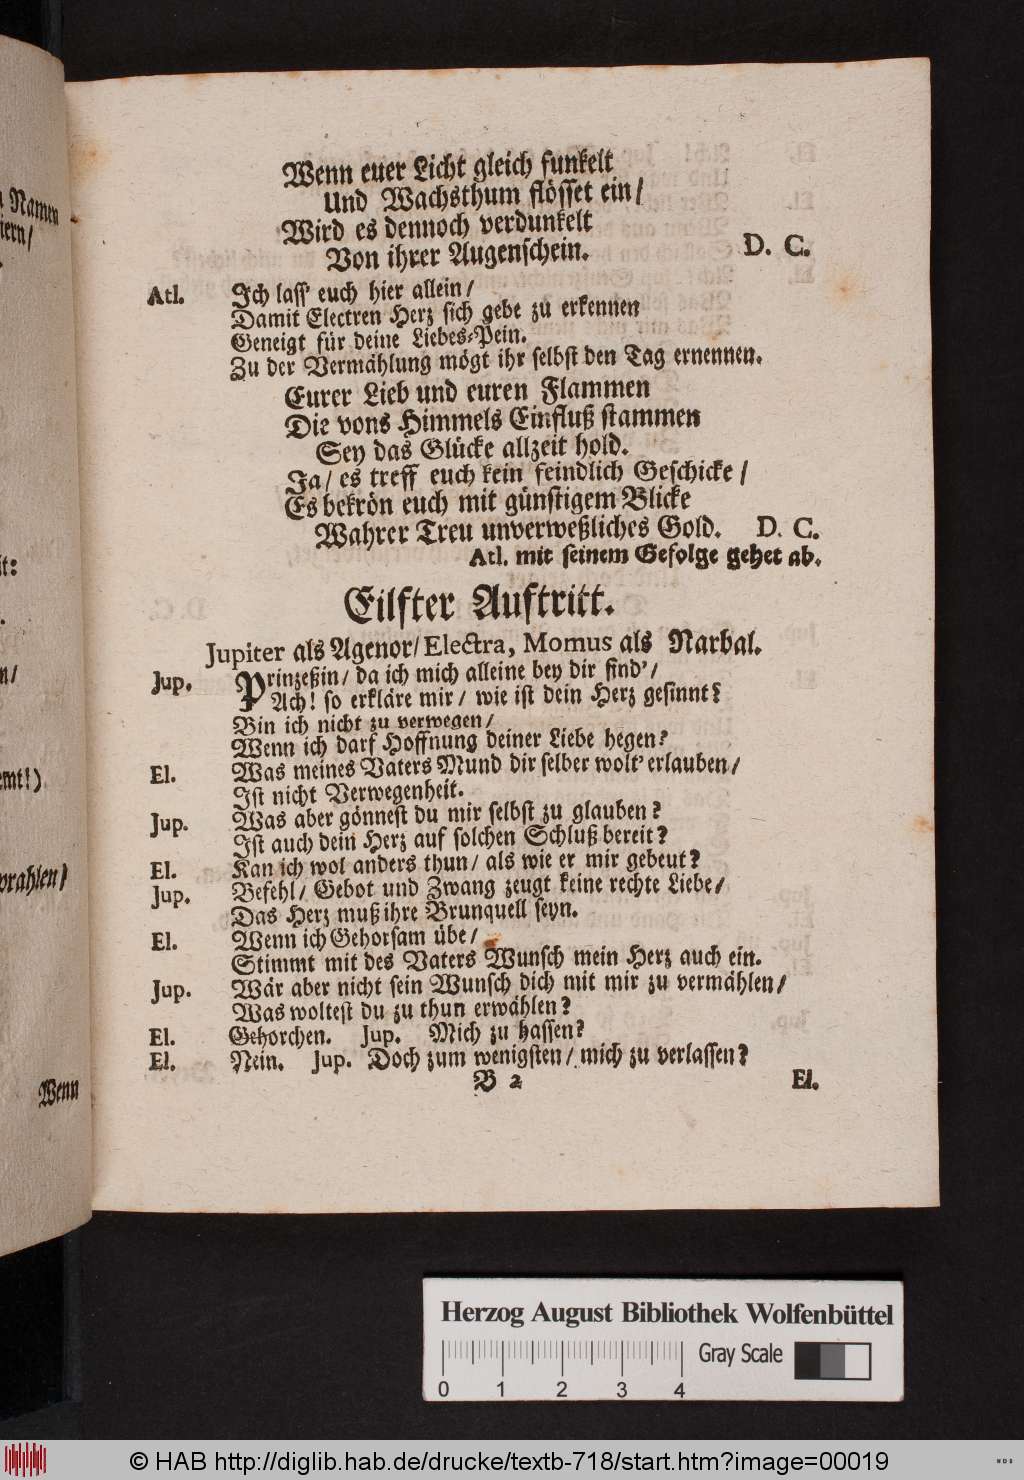 Namen
iern/
it:
n/
emt!)
prahlen/
Wenn
Wenn euer Licht gleich funkelt
Und Wachsthum flösset ein/
Wird es dennoch verdunkelt
Von ihrer Augenschein. D. C.
Atl. Ich lass' euch hier allein/
Damit Electren Herz sich gebe zu erkennen
Geneigt für deine Liebes-Pein.
Zu der Vermählung mögt ihr selbst den Tag ernennen.
Eurer Lieb und euren Flammen
Die vons Himmels Einfluß stammen
Sey das Glücke allzeit hold.
Ja/ es treff euch kein feindlich Geschicke/
Es bekrön euch mit günstigem Blicke
Wahrer Treu unverweßliches Gold. D. C.
Atl. mit seinem Gefolge gehet ab.
Eilfter Auftritt.
Jupiter als Agenor/ Electra, Momus als Narbal.
Jup. Prinzeßin/ da ich mich alleine bey dir find'/
Ach! so erkläre mir/ wie ist dein Herz gesinnt?
Bin ich nicht zu verwegen/
Wenn ich darf Hoffnung deiner Liebe hegen?
El. Was meines Vaters Mund dir selber wolt' erlauben/
Ist nicht Verwegenheit.
Jup. Was aber gönnest du mir selbst zu glauben?
Ist auch dein Herz auf solchen Schluß bereit?
El. Kan ich wol anders thun/ als wie er mir gebeut?
Jup. Befehl/ Gebot und Zwang zeugt keine rechte Liebe/
Das Herz muß ihre Brunquell seyn.
El. Wenn ich Gehorsam übe/
Stimmt mit des Vaters Wunsch mein Herz auch ein.
Jup. Wär aber nicht sein Wunsch dich mit mir zu vermählen/
Was woltest du zu thun erwählen?
El. Gehorchen. Jup. Mich zu hassen?
El. Nein. Jup. Doch zum wenigsten/ mich zu verlassen?
B 2 El.
Herzog August Bibliothek Wolfenbüttel
Gray Scale
0 1 2 3 4
© HAB http://diglib.hab.de/drucke/textb-718/start.htm?image=00019